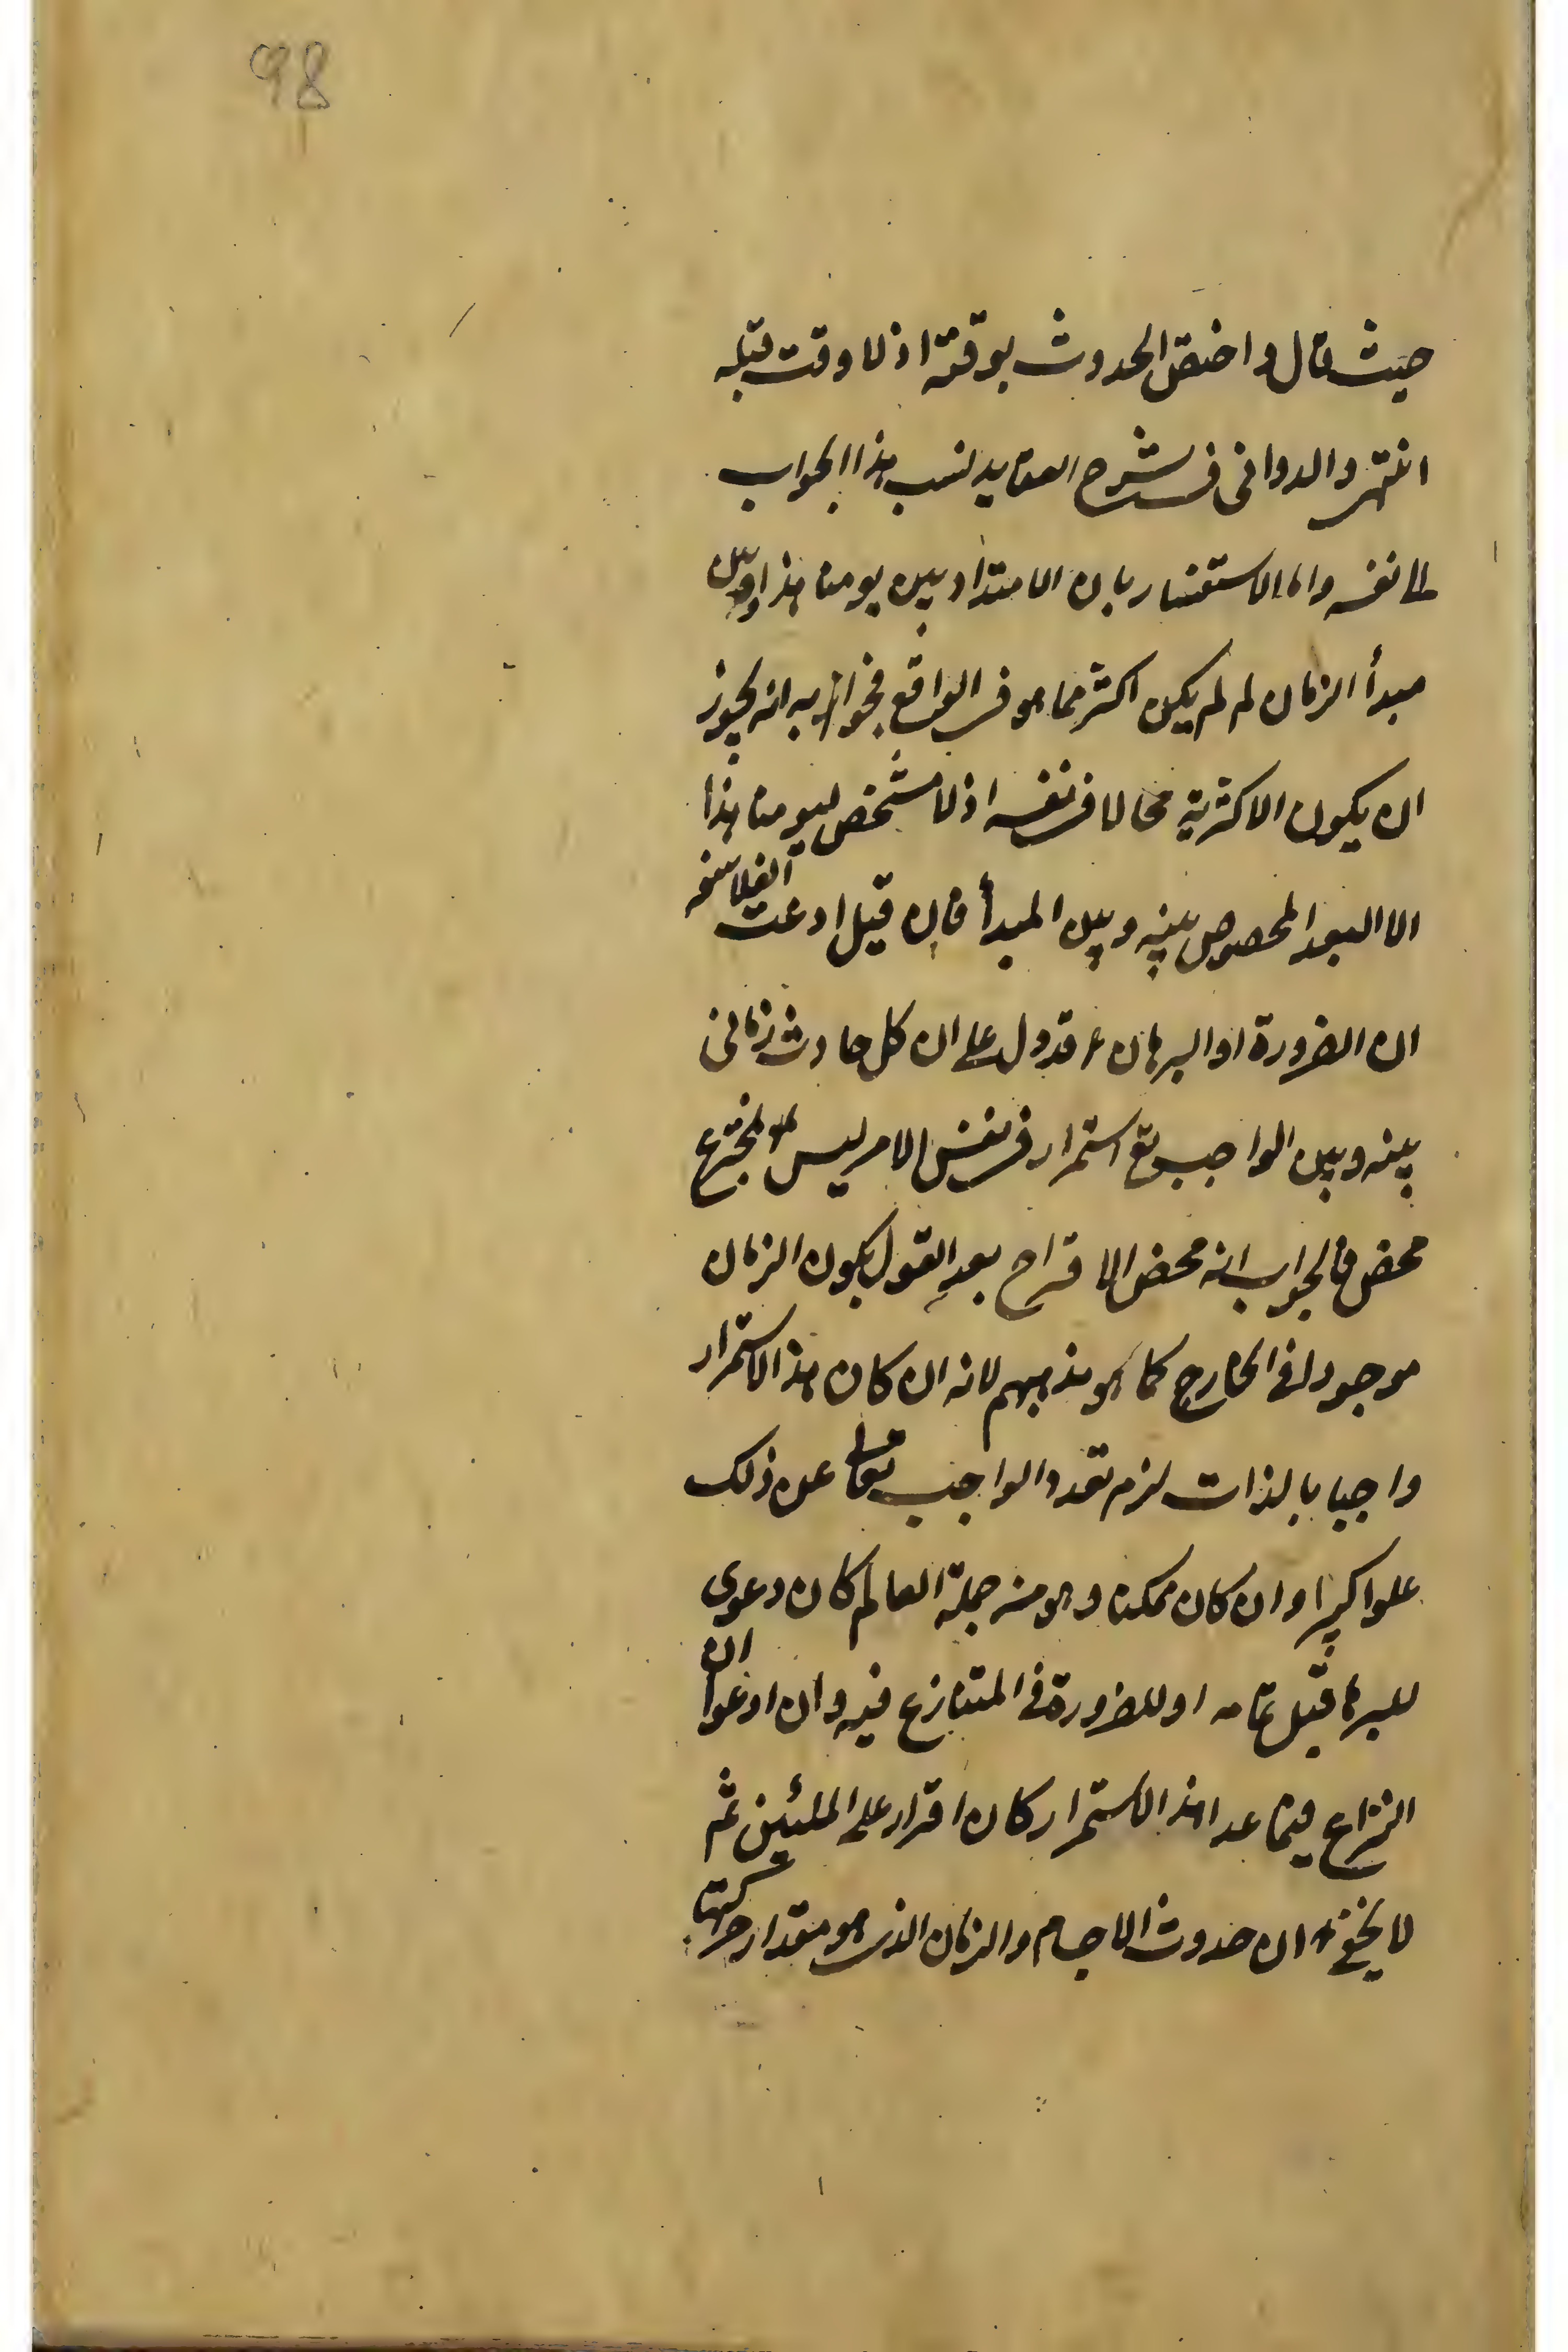 98
حيث قال واختص الحدوث بوقته اذ لا وقت قبله
انتهى والدوانى فى شرح العقايد نسب هذا الجواب
الى نفسه واما الاستفسار بان الامتداد بين يومنا هذا وبين
مبدأ الزمان لم لم يكن اكثر مما هو فى الواقع فجوابه انه يجوز
ان يكون الاكثرية محالا فى نفسه اذ لا مشخص ليومنا هذا
الا البعد المخصوص بينه وبين المبدأ فان قيل ادعت الفلاسفه
ان الضرورة او البرهان قد دل على ان كل حادث زمانى
بينه وبين الواجب تع استمرار فى نفس الامر ليس بمخترع
محض فالجواب انه محض الاقتراح بعد القول بكون الزمان
موجودا فى الخارج كما هو مذهبهم لانه ان كان هذا الاستمرار
واجبا بالذات لزم تعدد الواجب تعالى عن ذلك
علوا كبيرا وان كان ممكنا وهو من جملة العالم كان دعوى
للبرها قبل تمامه او للضرورة فى المتنازع فيه وان ادعوا ان
النزاع فيما عدا هذا الاستمرار كان افتراء على المليين ثم
لا يخفى ان حدوث الاجسام والزمان الذى هو مقدار حركتها